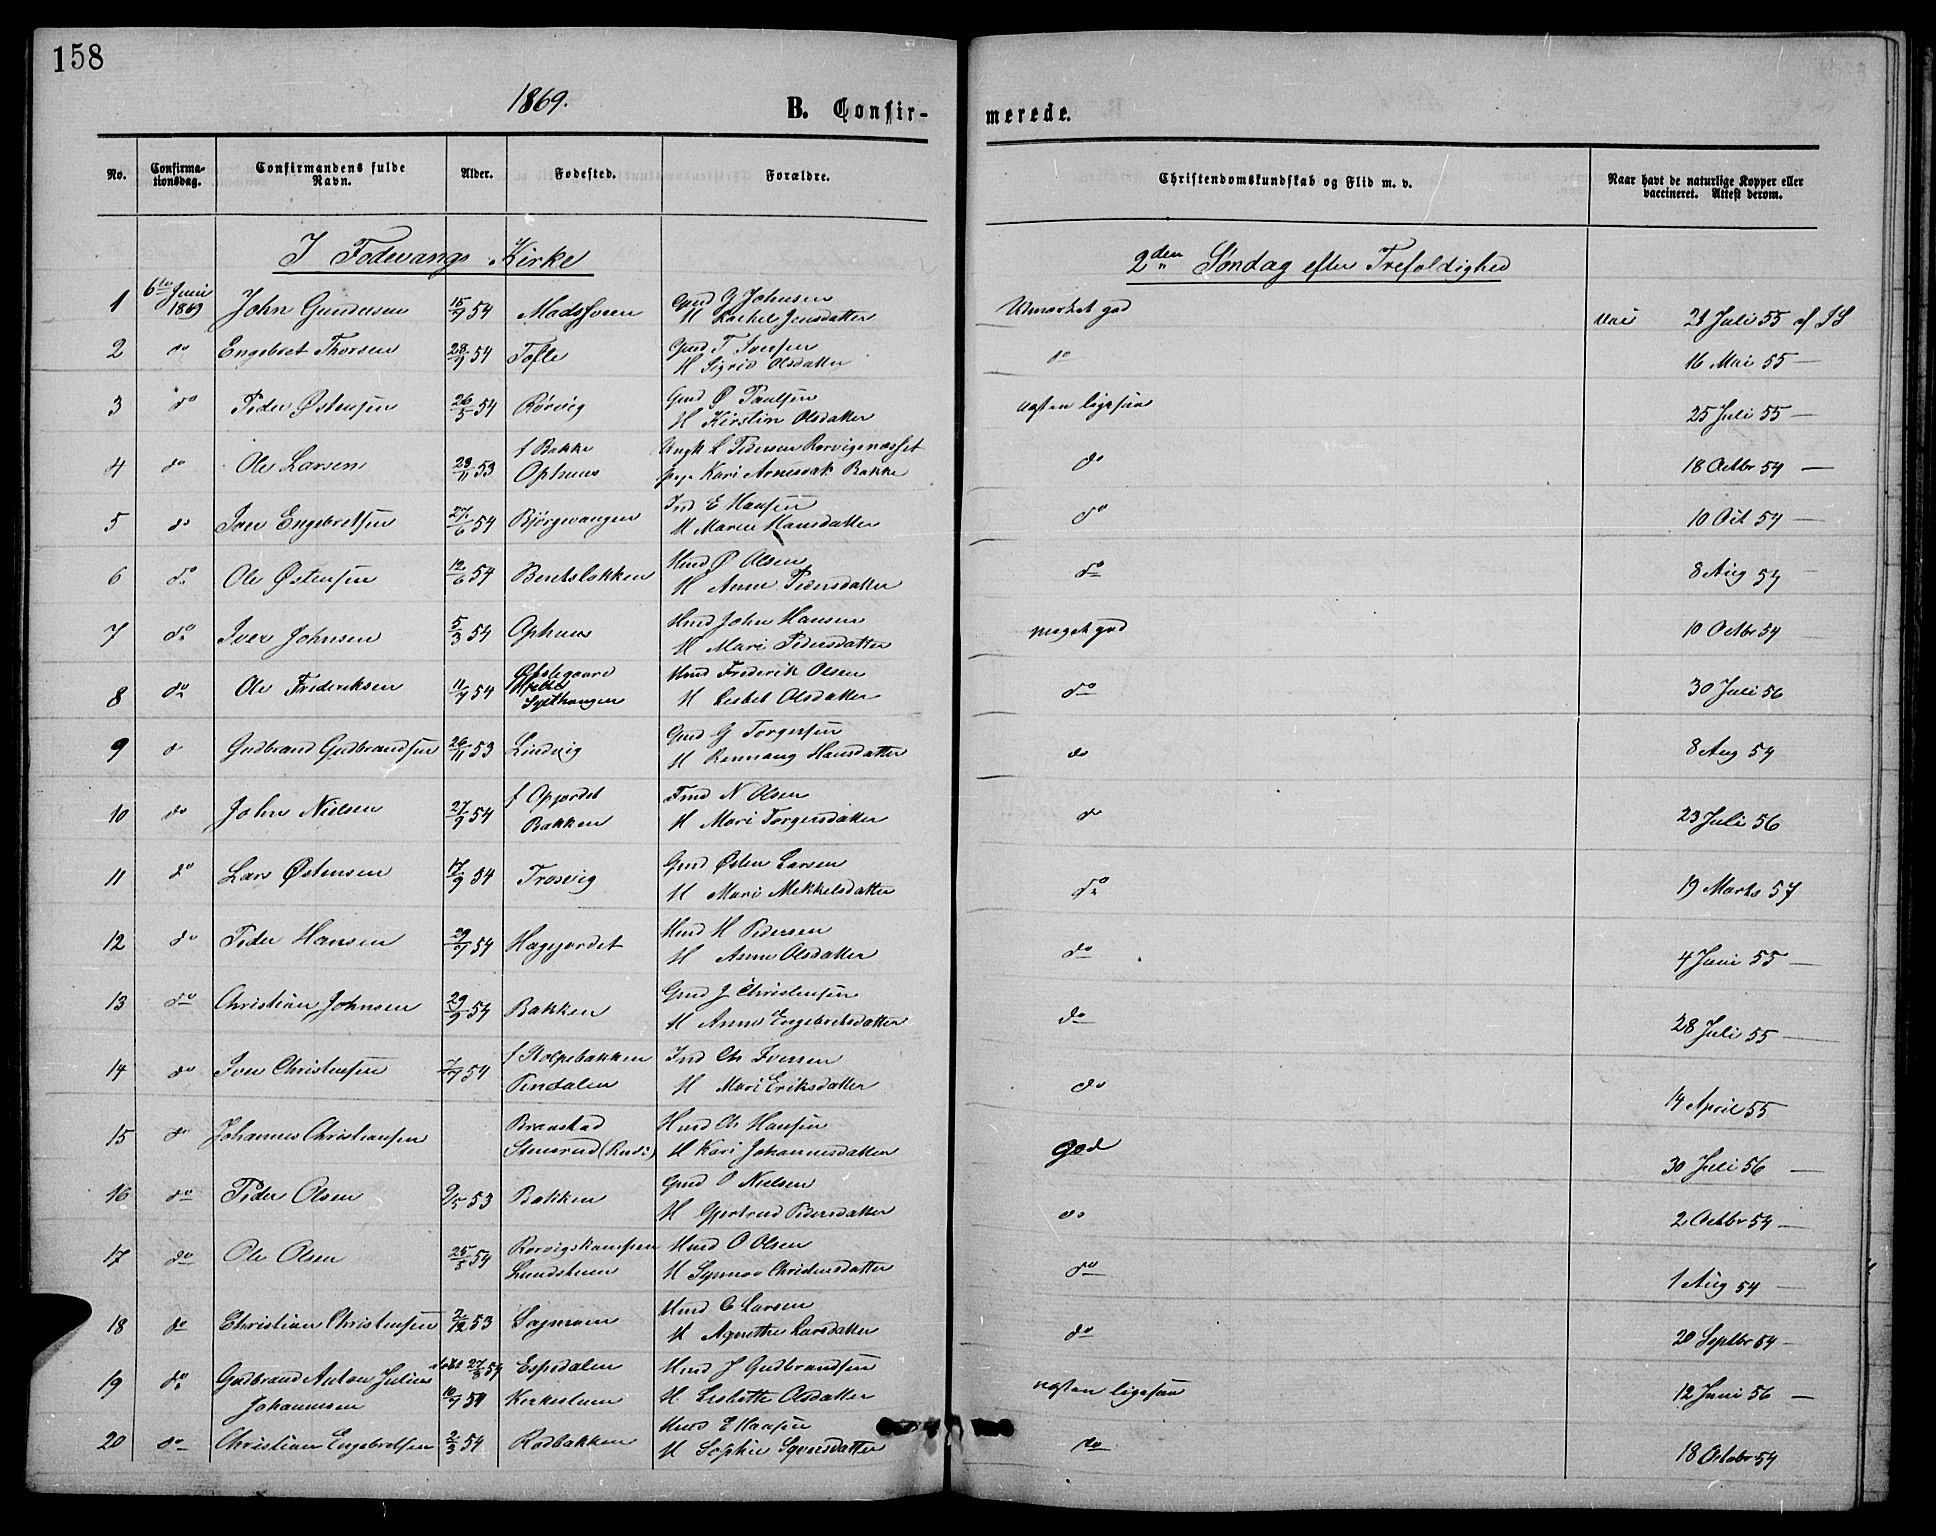 158
1869.
B. Confir-
merede.
No.
Confirma-
tionsdag.
Confirmandens fulde
Navn.
Alder.
Fødested.
Forældre.
Christendomskundskab og Flid m. v.
Naar havt de naturlige Kopper eller
vaccineret. Attest derom.
I Fodevangs Kirke
2den Søndag efter Trefoldighed
1 6te Juni 1869 John Gundersen 15/9 54 Gmd G Johnsen
H Rachel Jensdatter Udmærket god 21 Juli 55 af SS
2 do Engebret Thorsen 28/9 54 Tofte Gmd T Iversen
H Sigrid Olsdatter do 16 Mai 55 —
3 do Peder Østensen 26/5 54 Rørvig Gmd Ø Paulsen
H Kirstin Olsdatter næsten ligesaa 25 Juli 55 —
4 do Ole Larsen 23/11 53 f Bakke
Ophuus Ungk L Pedersen Rørvignæsset
Kari Arnesdat Bakke do 18 Octbr 54 —
5 do Iver Engebretsen 27/6 54 Bjørgevangen Ind E Hansen
H Maren Hansdatter do 10 Oct 54 —
6 do Ole Østensen 12/6 54 Berntsløkken Hmd Ø Olsen
H Anne Pedersdatter do 8 Aug 54 —
7 do Iver Johnsen 5/3 54 Ophuus Hmd John Hansen
H Mari Pedersdatter meget god 10 Octbr 54 —
8 do Ole Frederiksen 11/9 54 Hmd Frederik Olsen
H Lisbet Olsdatter do 30 Juli 56
9 do Gudbrand Gudbrandsen 26/11 53 Lindvig Gmd G Torgersen
H Rønnaug Hansdatter do 8 Aug 54
10 do John Nielsen 27/9 54 f Opjordet
Bakken Fmd N Olsen
H Mari Torgersdatter do 23 Juli 56
11 do Lars Østensen 17/9 54 Trosvig Gmd Østen Larsen
H Mari Mekkelsdatter do 19 Marts 57
12 do Peder Hansen 29/7 54 Hagejordet Hmd H Pedersen
H Anne Olsdatter do 4 Juni 55 —
13 do Christian Johnsen 29/9 54 Bakken Gmd J Christensen
H Anne Engebretsdatter do 28 Juli 55 —
14 do Iver Christensen 7/9 54 f Rolpebakken
Ind Ch Iversen
H Mari Eriksdatter do 14 April 55
15 do Johannes Christiansen Branstad
Stensrud Hmd Ch Hansen
H Kari Johannesdatter god 30 Juli 56 —
16 do Peder Olsen 9/5 53 Bakken Gmd O Nielsen
H Gjertrud Pedersdatter do 2 Octbr 54 —
17 do Ole Olsen 25/5 54 Rørvigskampen
Lundstuen Hmd O Olsen
H Synnøv Christensdatter do 1 Aug 54 —
18 do Christian Christensen 2/12 53 Sagmoen Hmd C Larsen
H Agnethe Larsdatter do 20 Septbr 54 —
19 do Gudbrand Anton Julius
Johannesen døbt 27/8 54
10/7 54 Espedalen
Kirkestuen Hmd J Gudbrandsen
H Lisbette Olsdatter næsten ligesaa 12 Juni 56 —
20 do Christian Engebretsen 2/3 54 Rødbakken Hmd E Hansen
H Sophie Syversdatter do 18 Octobr 54